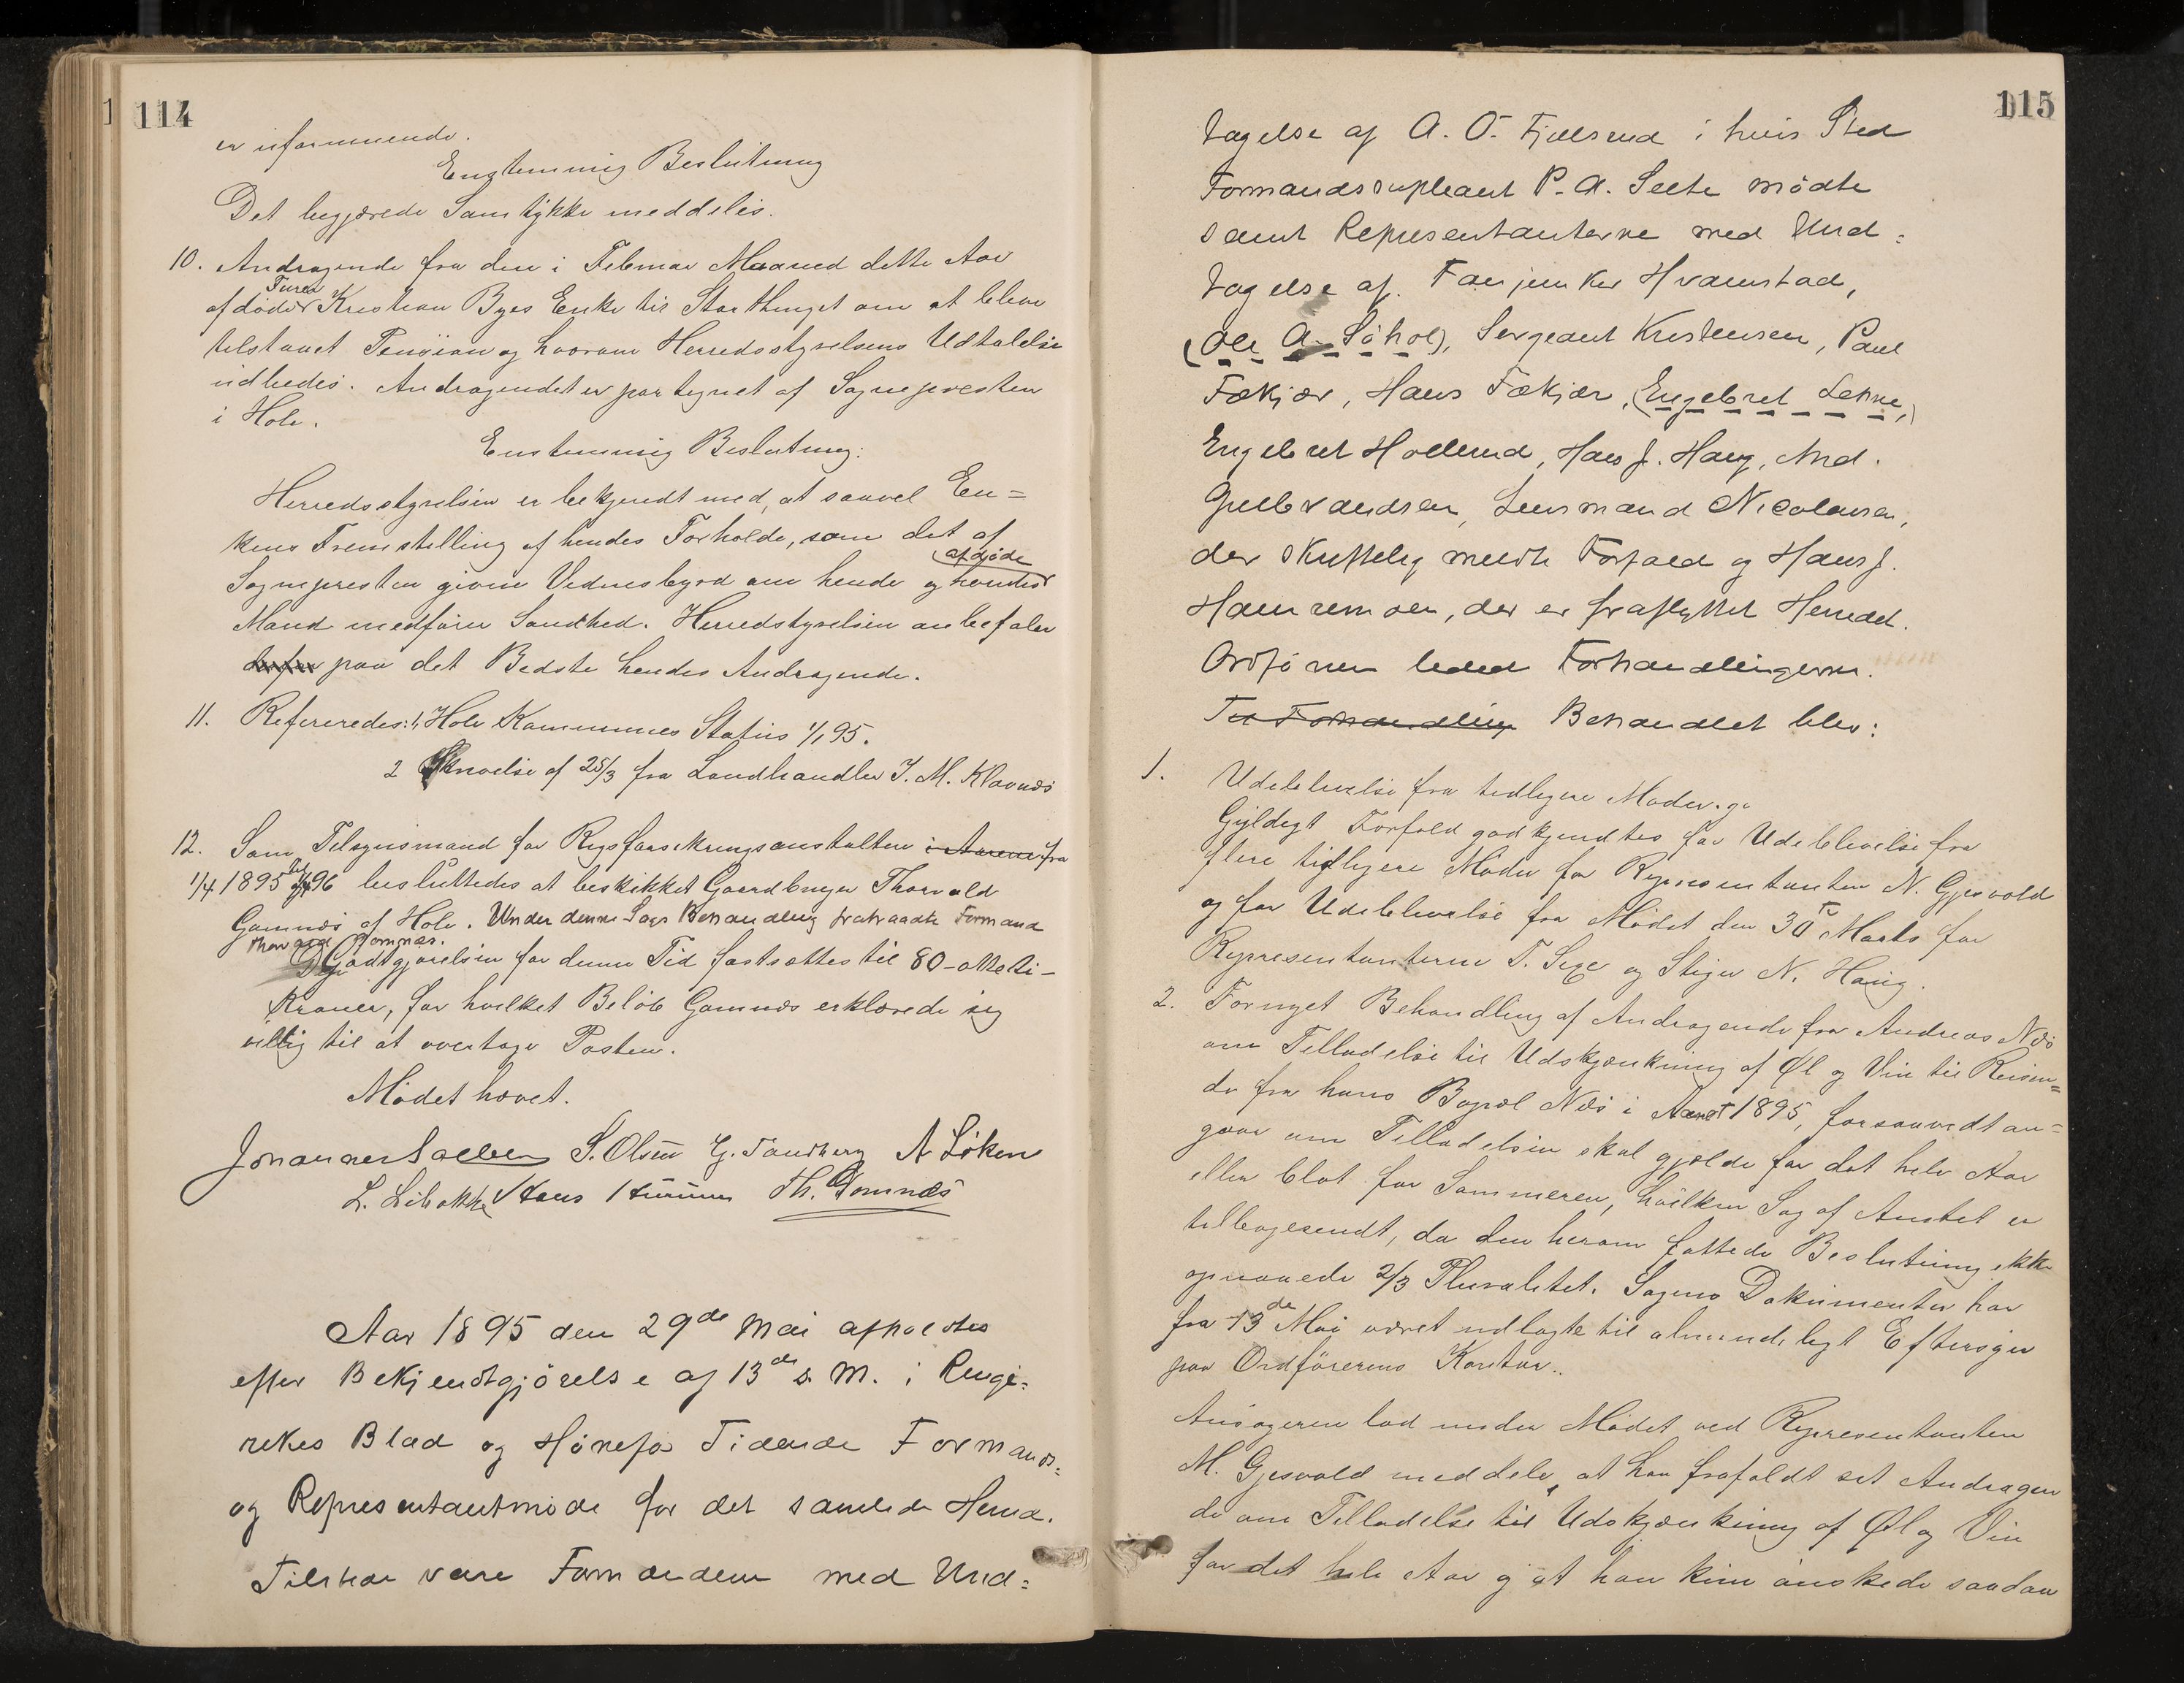 114
er uformuende.
Enstemmig Beslutning
Det begjærede Samtykke meddeles.
10. Andragende fra den i Februar Maaned dette Aar
afdøde Furer Kristian Byes Enke til Storthinget om at blive
tilstaaet Pension og hvorom Herredsstyrelsens Udtalelse
udbedes. Andragendet er paategnet af Sognepresten
i Hole.
Enstemmig Beslutning:
Herredsstyrelsen er bekjendt med, at saavel En=
kens Fremstilling af hendes Forholde, som det af
Sognepresten givne Vidnesbyrd om hende og hendes afdøde
Mand medfører Sandhed. Herredstyrelsen anbefaler
derfor paa det Bedste hendes Andragende.
11. Refereredes: 1, Hole Kommunes Status 1/1 95.
2 Skrivelse af 25/3 fra Landhandler J. M. Klavnæs
12. Som Tilsynsmand for Rigsforsikringsanstalten i Aarene fra
1/4 1895 til 1/4 96 besluttedes at beskikket Gaardbruger Thorvald
Gomnæs af Hole. Under denne Sags Behandling fratraadte Formand
Thorvald Gomnæs.
Godtgjørelsen for denne Tid fastsættes til 80 - otteti -
Kroner, for hvilket Beløb Gomnæs erklærede sig
villig til at overtage Posten.
Mødet hævet.
Johannes Sollien S. Olsen G. Tandberg A Løken
L. Libakke Hans Hurum Th. Gomnæs
Aar 1895 den 29de Mai afholdtes
efter Bekjendtgjørelse af 13de s. M. i Ringe=
rikes Blad og Hønefos Tidende Formands=
og Representantmøde for det samlede Herred.
Tilstede vare Formændene med Und=
115
tagelse af A. O. Fjeldsrud i hvis Sted
Formandssupleant P. A. Sælte mødte
samt Representanterne med Und=
tagelse af. Fanejunker Hvamstad,
(Ole A. Søhol), Sergeant Kristensen, Paul
Fækjær, Hans Fækjær, (Engebret Lehne,)
Engebret Hollerud, Hans J. Haug, And.
Gulbrandsen, Lensmand Nicolaisen,
der skriftelig meldte Forfald og Hans J.
Hamremoen, der er fraflyttet Herredet.
Ordføreren leded Forhandlingerne.
Til Forhandling Behandlet blev:
1. Udeblivelse fra tidligere Møder.
Gyldigt Forfald godkjendtes for Udeblivelse fra
flere tidligere Møder for Representanten N. Gjesvold
og for Udeblivelse fra Mødet den 30te Marts for
Representanterne T. Sexe og Stiger N. Haug.
2. Fornyet Behandling af Andragende fra Andreas Næs
om Tilladelse til Udskjænkning af Øl og Vin til Reisen=
de fra hans Bopæl Næs i Aaret 1895, forsaavidt an=
gaar om Tilladelsen skal gjælde for det hele Aar
eller blot for Sommeren, hvilken Sag af Amtet er
tilbagesendt, da den herom fattede Beslutning ikke
opnaaede 2/3 Pluralitet. Sagens Dokumenter har
fra 13de Mai været udlagte til almindeligt Eftersyn
paa Ordførerens Kontor..
Ansøgeren lod under Mødet ved Representanten
M. Gjesvold meddele, at han frafaldt sit Andragen
de om Tilladelse til Udskjænkning af Øl og Vin
for det hele Aar og at han kun ønskede saadan